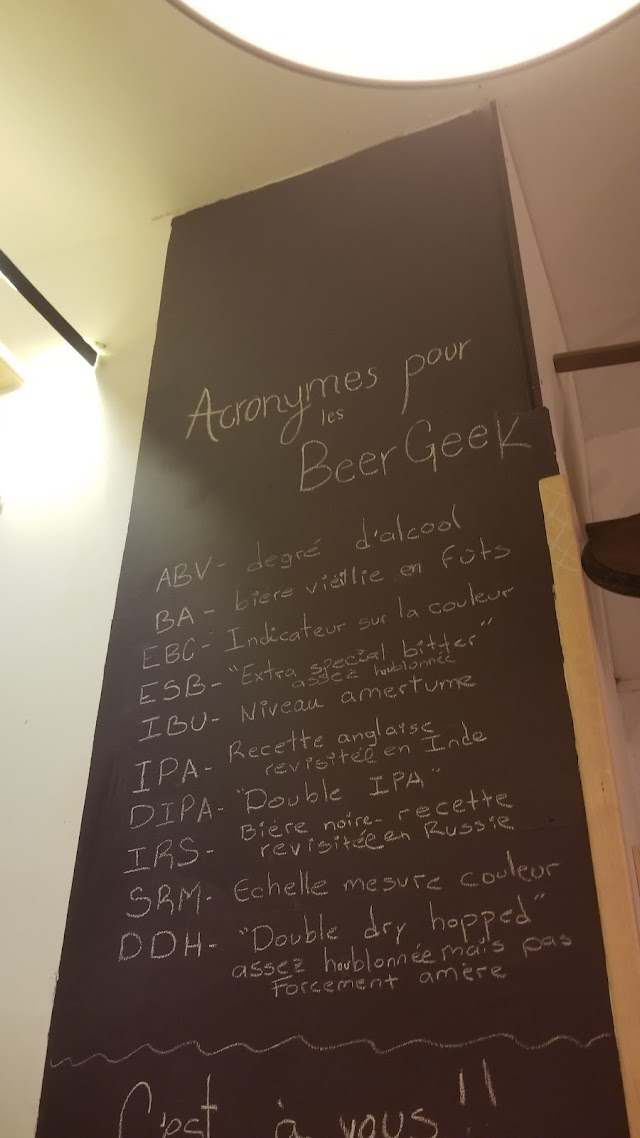 Acronymes pour
les
Beer Geek
ABV- degré d'alcool
BA- bière vieillie en fûts
EBC- Indicateur sur la couleur
ESB- "Extra special bitter"
assez houblonnée
IBU- Niveau amertume
IPA- Recette anglaise
revisitée en Inde
DIPA- "Double IPA"
IRS- Bière noire- recette
revisitée en Russie
SRM- Echelle mesure couleur
DDH- "Double dry hopped"
assez houblonnée mais pas
Forcement amère
C'est à vous!!